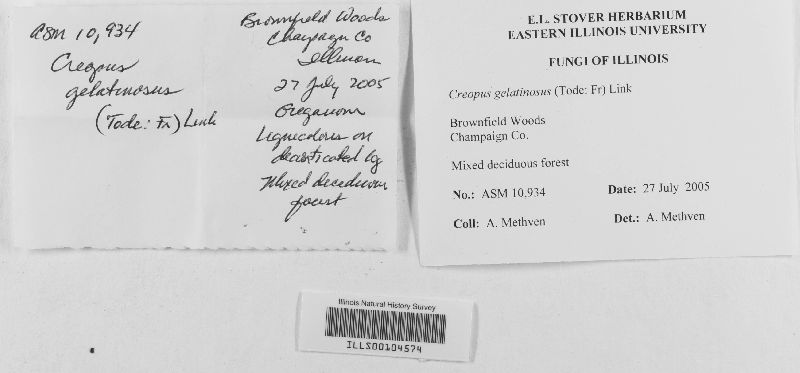 ASM 10,934
Creopus
gelatinosus
(Tode: Fr) Link
Brownfield Woods
Champaign Co
Illinois
27 July 2005
Gregarious
Lignicolous on
decorticated log
Mixed deciduous
forest
E.L. STOVER HERBARIUM
EASTERN ILLINOIS UNIVERSITY
FUNGI OF ILLINOIS
Creopus gelatinosus (Tode: Fr) Link
Brownfield Woods
Champaign Co.
Mixed deciduous forest
No.: ASM 10,934 Date: 27 July 2005
Coll: A. Methven Det.: A. Methven
Illinois Natural History Survey
ILLS00104574